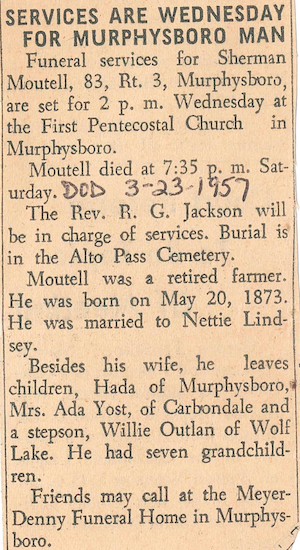 SERVICES ARE WEDNESDAY
FOR MURPHYSBORO MAN
Funeral services for Sherman
Moutell, 83, Rt. 3, Murphysboro,
are set for 2 p. m. Wednesday at
the First Pentecostal Church in
Murphysboro.
Moutell died at 7:35 p. m. Sat-
urday. DOD 3-23-1957
The Rev. R. G. Jackson will
be in charge of services. Burial is
in the Alto Pass Cemetery.
Moutell was a retired farmer.
He was born on May 20, 1873.
He was married to Nettie Lind-
sey.
Besides his wife, he leaves
children, Hada of Murphysboro,
Mrs. Ada Yost, of Carbondale and
a stepson, Willie Outlan of Wolf
Lake. He had seven grandchild-
ren.
Friends may call at the Meyer-
Denny Funeral Home in Murphys-
boro.